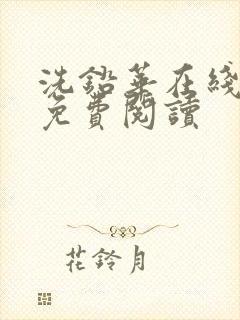 洗鉛華在綫
免費閱讀
花鈴月